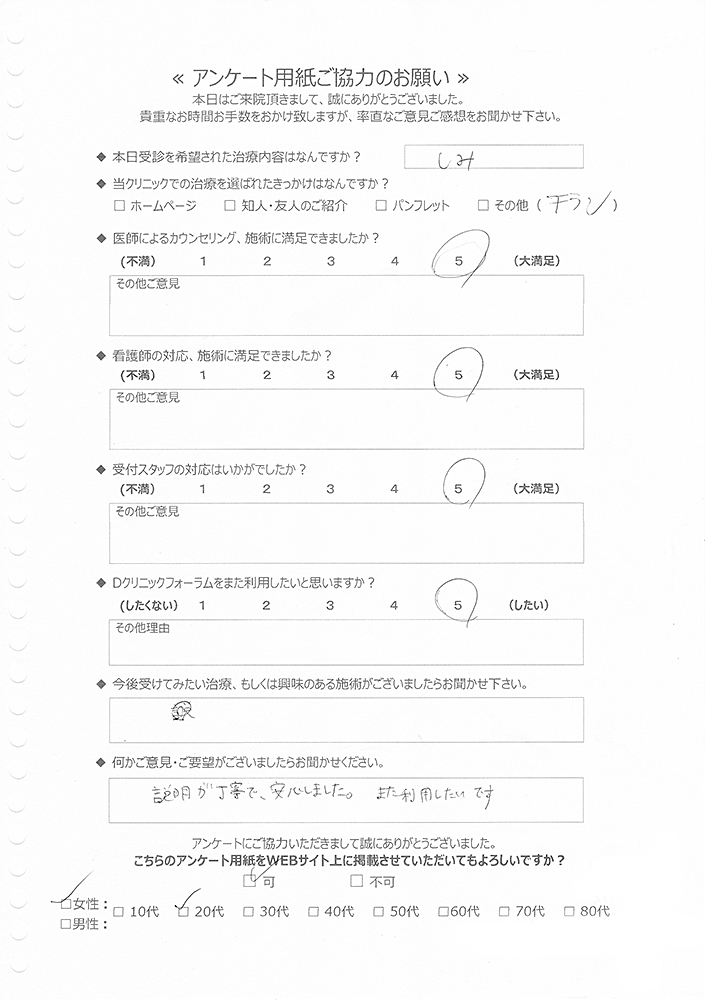 ≪ アンケート用紙ご協力のお願い ≫
本日はご来院頂きまして、誠にありがとうございました。
貴重なお時間お手数をおかけ致しますが、率直なご意見ご感想をお聞かせ下さい。
◆ 本日受診を希望された治療内容はなんですか？ しみ
◆ 当クリニックでの治療を選ばれたきっかけはなんですか？
□ ホームページ □ 知人・友人のご紹介 □ パンフレット □ その他（チラシ）
◆ 医師によるカウンセリング、施術に満足できましたか？
(不満) 1 2 3 4 5 (大満足)
その他ご意見
◆ 看護師の対応、施術に満足できましたか？
(不満) 1 2 3 4 5 (大満足)
その他ご意見
◆ 受付スタッフの対応はいかがでしたか？
(不満) 1 2 3 4 5 (大満足)
その他ご意見
◆ Dクリニックフォーラムをまた利用したいと思いますか？
(したくない) 1 2 3 4 5 (したい)
その他理由
◆ 今後受けてみたい治療、もしくは興味のある施術がございましたらお聞かせ下さい。
◆ 何かご意見・ご要望がございましたらお聞かせください。
説明が丁寧で、安心しました。 また利用したいです
アンケートにご協力いただきまして誠にありがとうございました。
こちらのアンケート用紙をWEBサイト上に掲載させていただいてもよろしいですか？
□ 可 □ 不可
□女性： □ 10代 □ 20代 □ 30代 □ 40代 □ 50代 □60代 □ 70代 □ 80代
□男性：